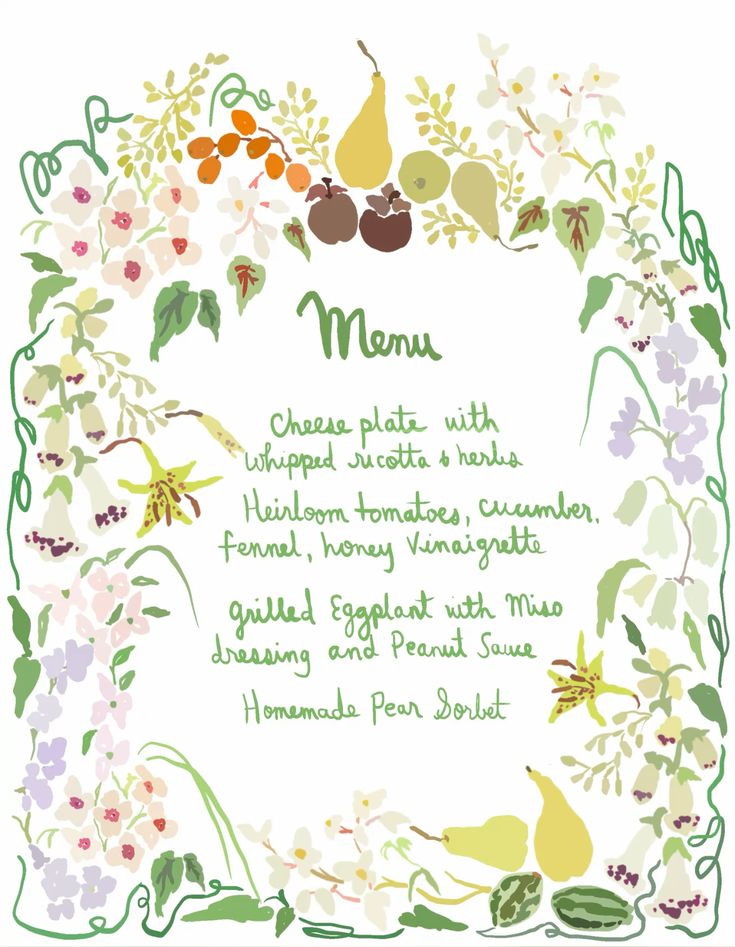 Menu
Cheese plate with
whipped ricotta & herbs
Heirloom tomatoes, cucumber,
fennel, honey Vinaigrette
grilled Eggplant with Miso
dressing and Peanut Sauce
Homemade Pear Sorbet